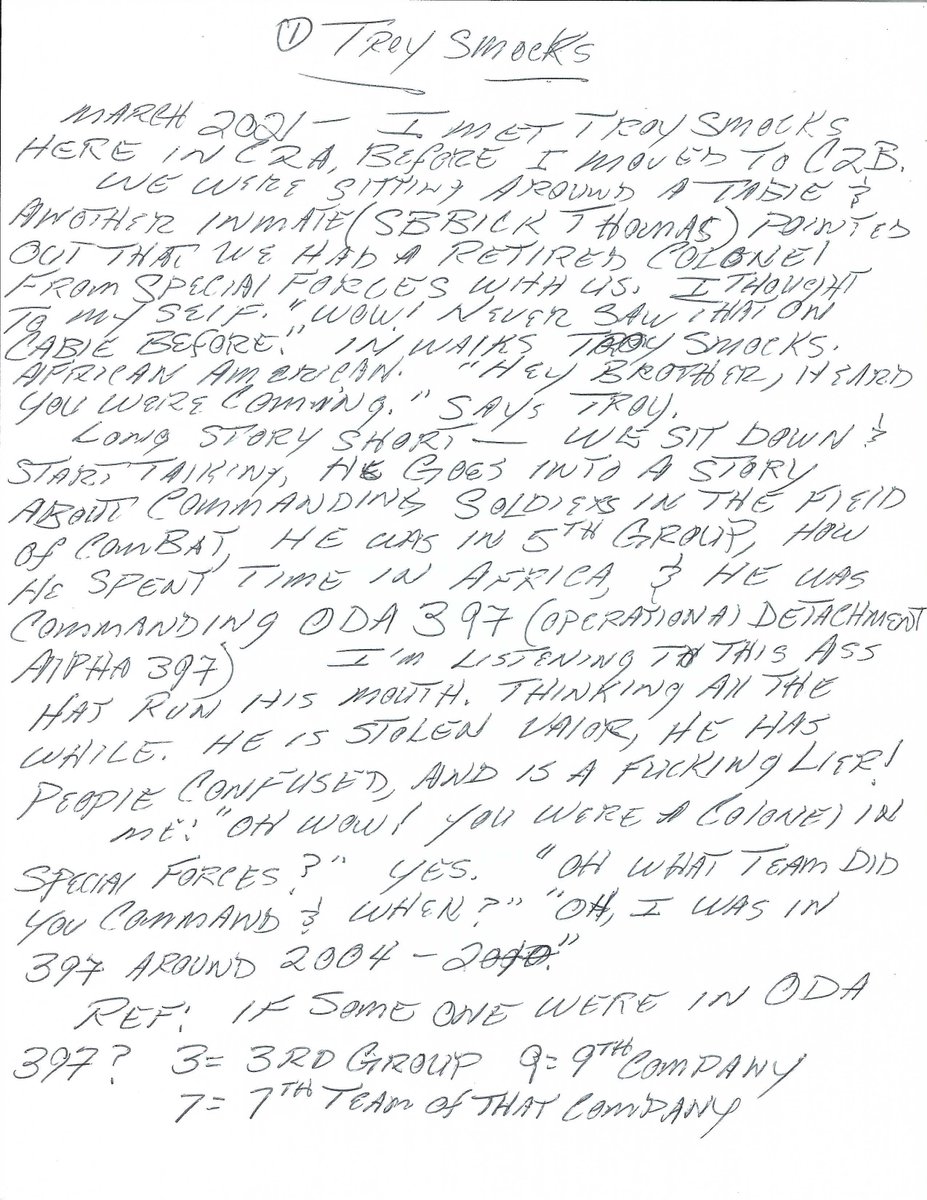 ① TROY SMOCKS
MARCH 2021 — I MET TROY SMOCKS
HERE IN C2A, BEFORE I MOVED TO C2B.
WE WERE SITTING AROUND A TABLE &
ANOTHER INMATE (SBBRICK THOMAS) POINTED
OUT THAT WE HAD A RETIRED COLONEL
FROM SPECIAL FORCES WITH US. I THOUGHT
TO MY SELF. "WOW! NEVER SAW THAT ON
CABLE BEFORE." IN WALKS TROY SMOCKS.
AFRICAN AMERICAN. "HEY BROTHER, HEARD
YOU WERE COMING." SAYS TROY.
LONG STORY SHORT — WE SIT DOWN &
START TALKING, HE GOES INTO A STORY
ABOUT COMMANDING SOLDIERS IN THE FIELD
OF COMBAT, HE WAS IN 5TH GROUP, HOW
HE SPENT TIME IN AFRICA, & HE WAS
COMMANDING ODA 397 (OPERATIONAL DETACHMENT
ALPHA 397) I'M LISTENING TO THIS ASS
HAT RUN HIS MOUTH. THINKING ALL THE
WHILE. HE IS STOLEN VALOR, HE HAS
PEOPLE CONFUSED, AND IS A FUCKING LIER!
ME: "OH WOW! YOU WERE A COLONEL IN
SPECIAL FORCES?" YES. "OH WHAT TEAM DID
YOU COMMAND & WHEN?" "OH, I WAS IN
397 AROUND 2004 - 2010."
REF: IF SOME ONE WERE IN ODA
397? 3 = 3RD GROUP 9 = 9TH COMPANY
7 = 7TH TEAM OF THAT COMPANY